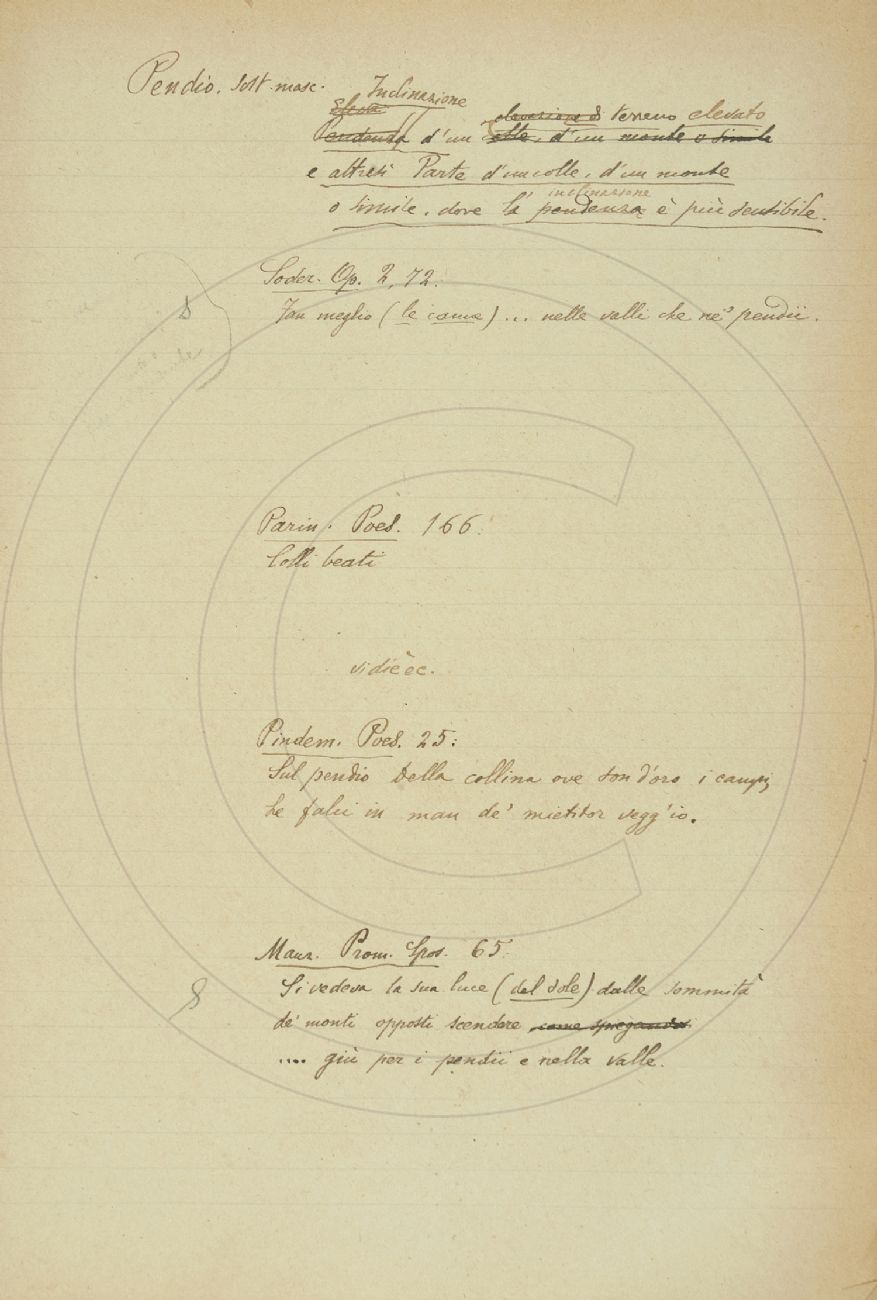 Pendio. sost. masc. Inclinazione
elevazione di terreno elevato
Pendenza d'un colle, d'un monte o simile
e altresì Parte d'un colle, d'un monte
inclinazione
o simile, dove la pendenza è più sensibile.
Soder. Op. 2, 72.
Fan meglio (le canne) ... nelle valli che ne' pendii.
Parin. Poes. 166.
Colli beati
vidi ec.
Pindem. Poes. 25:
Sul pendio della collina ove son d'oro i campi
Le falci in man de' mietitor vegg'io.
Manz. Prom. Spos. 65.
Si vedeva la sua luce (del sole) dalle sommità
de' monti opposti scendere come spiegandosi
.... giù per i pendii e nella valle.